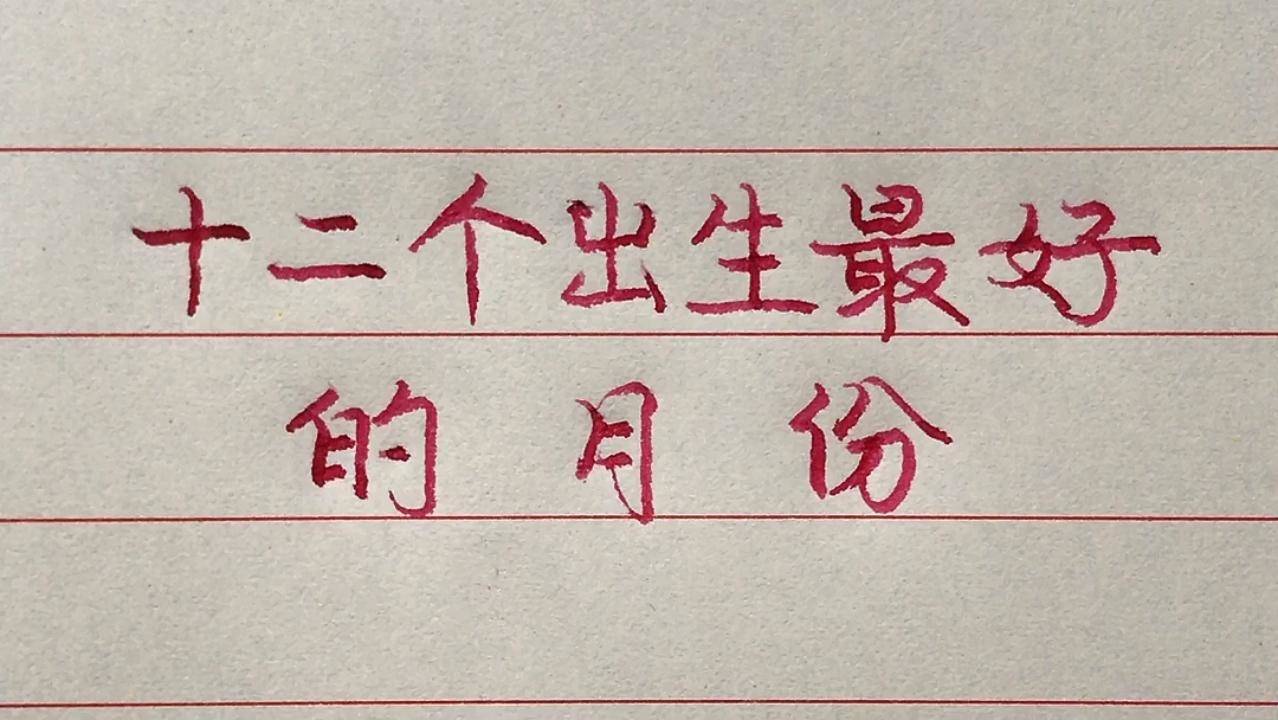 十二个出生最好
的月份